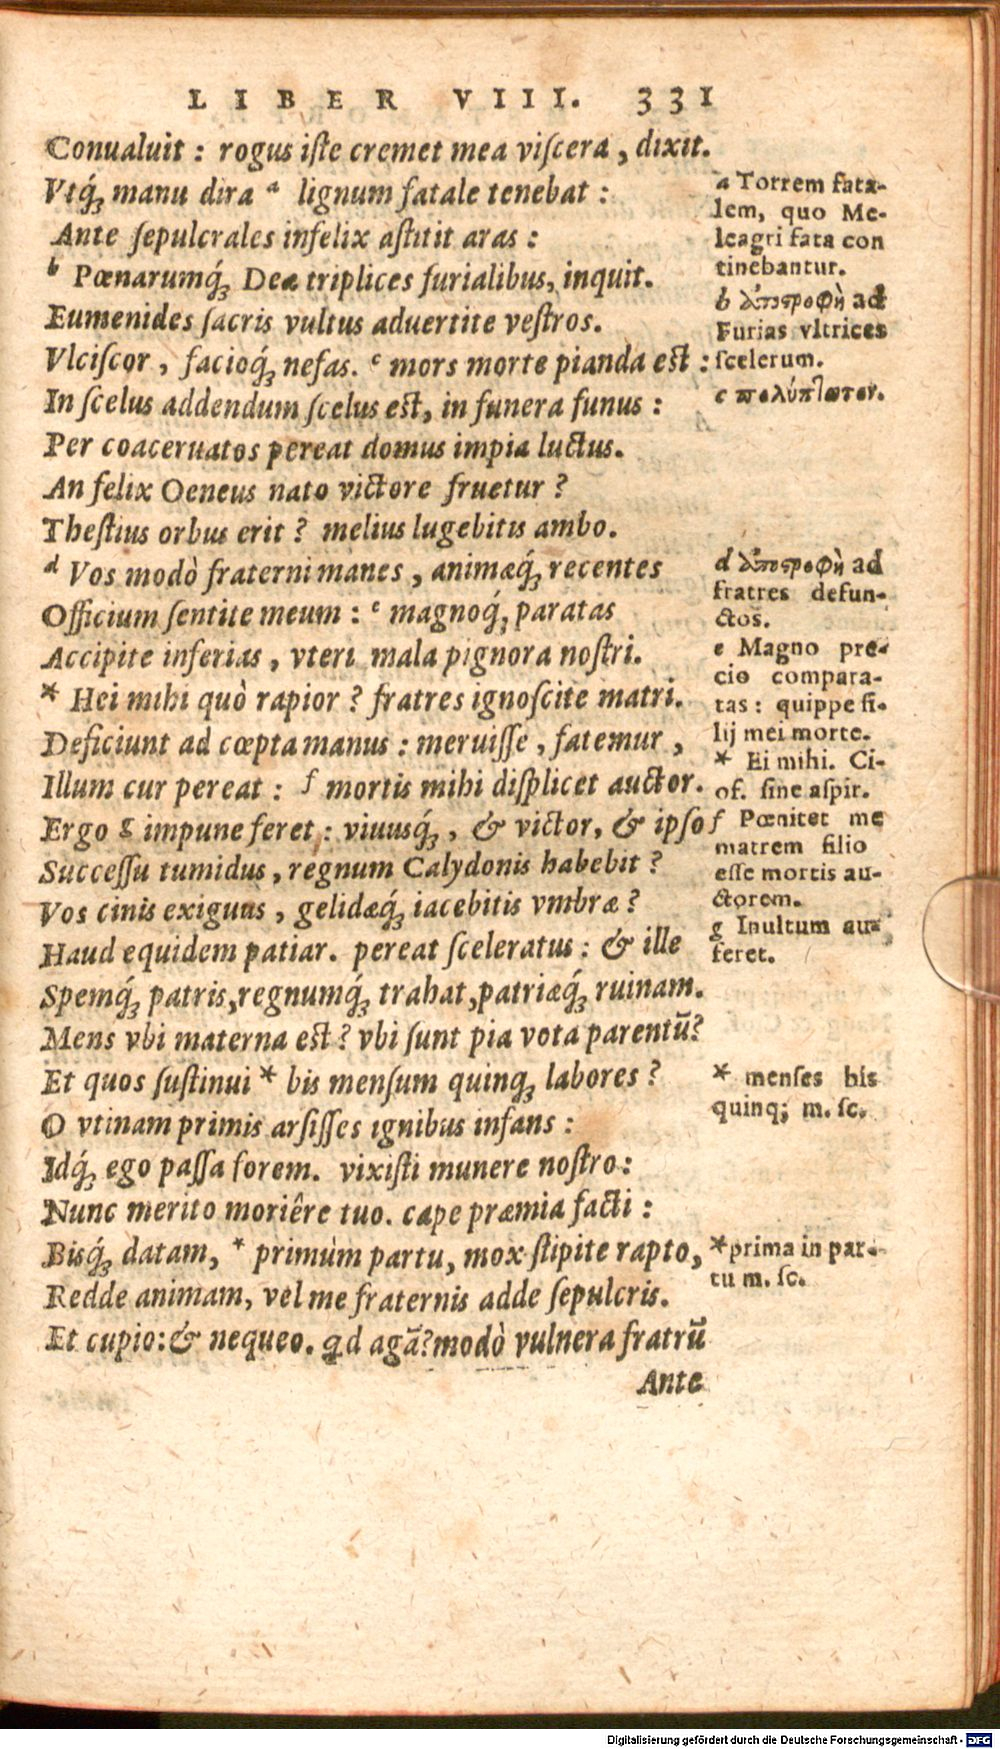 LIBER VIII. 331
Conualuit : rogus iſte cremet mea viſcera, dixit.
Vtq́ꝫ manu dira ᵃ lignum fatale tenebat :
Ante ſepulcrales infelix aſtitit aras :
ᵇ Pœnarumq́ꝫ Deæ triplices furialibus, inquit.
Eumenides ſacris vultus aduertite veſtros.
Vlciſcor, facioq́ꝫ nefas. ᶜ mors morte pianda eſt :
In ſcelus addendum ſcelus eſt, in funera funus :
Per coaceruatos pereat domus impia luctus.
An felix Oeneus nato victore fruetur ?
Theſtius orbus erit ? melius lugebitis ambo.
ᵈ Vos modò fraterni manes, animæq́ꝫ recentes
Officium ſentite meum : ᵉ magnoq́ꝫ paratas
Accipite inferias, vteri mala pignora noſtri.
* Hei mihi quò rapior ? fratres ignoſcite matri.
Deficiunt ad cœpta manus : meruiſſe, fatemur,
Illum cur pereat : f mortis mihi diſplicet auctor.
Ergo g impune feret : viuusq́ꝫ, & victor, & ipſo
Succeſſu tumidus, regnum Calydonis habebit ?
Vos cinis exiguus, gelidæq́ꝫ iacebitis vmbræ ?
Haud equidem patiar. pereat ſceleratus : & ille
Spemq́ꝫ patris, regnumq́ꝫ trahat, patriæq́ꝫ ruinam.
Mens vbi materna eſt ? vbi ſunt pia vota parentũ ?
Et quos ſuſtinui * bis menſum quinq́ꝫ labores ?
O vtinam primis arſiſſes ignibus infans :
Idq́ꝫ ego paſſa forem. vixiſti munere noſtro :
Nunc merito moriêre tuo. cape præmia facti :
Bisq́ꝫ datam, * primùm partu, mox ſtipite rapto,
Redde animam, vel me fraternis adde ſepulcris.
Et cupio : & nequeo. qd agã? modò vulnera fratrũ
Ante
a Torrem fata-
lem, quo Me-
leagri fata con
tinebantur.
b ἀποστροφὴ ad
Furias vltrices
ſcelerum.
c πολύπτωτον.
d ἀποστροφὴ ad
fratres defun-
ctos.
e Magno pre-
cio compara-
tas : quippe fi-
lij mei morte.
* Ei mihi. Ci-
of. ſine aſpir.
f Pœnitet me
matrem filio
eſſe mortis au-
ctorem.
g Inultum au-
feret.
* menſes bis
quinq; m. ſc.
* prima in par-
tu m. ſc.
Digitalisierung gefördert durch die Deutsche Forschungsgemeinschaft - DFG